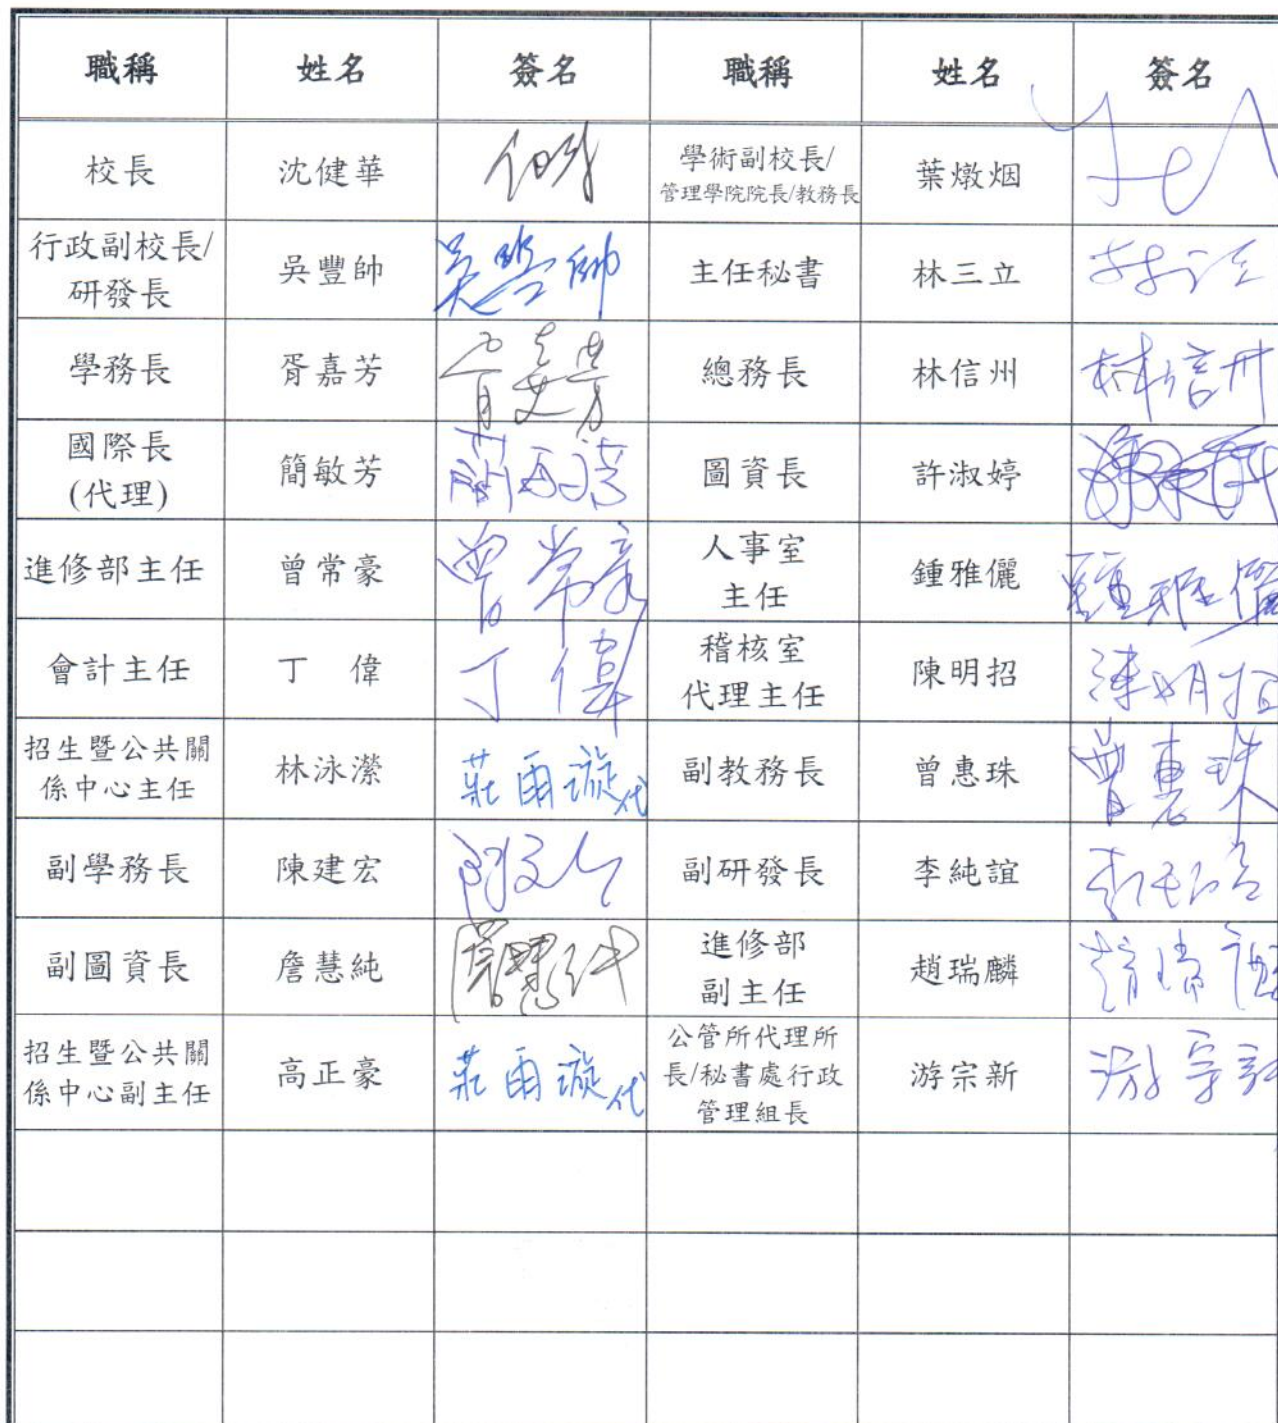 職稱 姓名 簽名 職稱 姓名 簽名
校長 沈健華 學術副校長/
管理學院院長/教務長 葉燉烟
行政副校長/
研發長 吳豐帥 吳豐帥 主任秘書 林三立
學務長 胥嘉芳 胥嘉芳 總務長 林信州 林信州
國際長
(代理) 簡敏芳 圖資長 許淑婷
進修部主任 曾常豪 曾常豪 人事室
主任 鍾雅儷 鍾雅儷
會計主任 丁 偉 丁偉 稽核室
代理主任 陳明招 陳明招
招生暨公共關
係中心主任 林泳瀠 莊雨漩代 副教務長 曾惠珠 曾惠珠
副學務長 陳建宏 副研發長 李純誼
副圖資長 詹慧純 詹慧純 進修部
副主任 趙瑞麟 趙瑞麟
招生暨公共關
係中心副主任 高正豪 莊雨漩代 公管所代理所
長/秘書處行政
管理組長 游宗新 游宗新